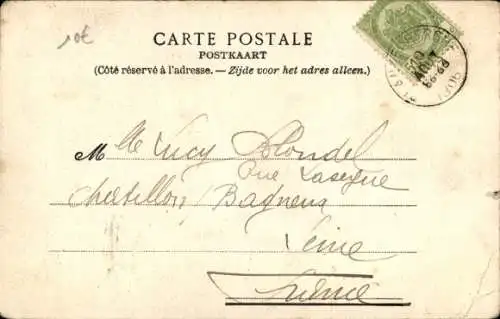 10€
CARTE POSTALE
POSTKAART
(Côté réservé à l'adresse. — Zijde voor het adres alleen.)
Mlle Lucy Blondel
Rue Lasègne
Chatillon / Bagneux
Seine